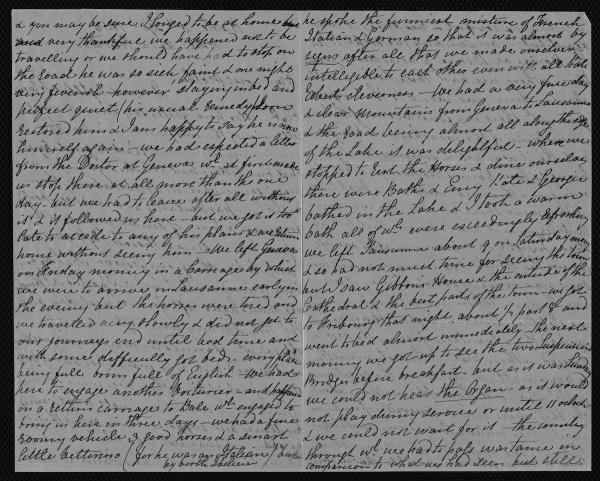 & you may be sure I longed to be at home
and very thankful we happened not to be
travelling or we should have had to stop on
the road he was so sick faint & one night
very feverish however staying in bed and
perfect quiet (his usual remedy) soon
restored him & I am happy to say he is now
himself again – we had expected a letter
from the Doctor at Geneva wh. at first made
us stop there at all more than the one
day – but we had to leave after all without
it & it followed us here – but we got it too
late to accede to any of his plans & we return
home without seeing him – We left Geneva
on Friday morning in a Carriage by which
we were to arrive in Lausanne early in
the evening but the horses were tired and
we travelled very slowly & did not get to
our journeys end until bed time and
with some difficulty got beds – every place
being full brim full of English – We had
here to engage another Voiturier – and
on a return carriage to Bale wh. engaged to
bring us here in three days – we had a fine
roomy vehicle 3 good horses & a smart
little vetturino (for he was an Italian) but
by birth
he spoke the funniest mixture of French
Italian & German so that it was almost by
signs after all that we made ourselves
intelligible to each other even with all
cleverness – We had a very fine day
& clear Mountains from Geneva to Lausanne
& the road being almost all along the edge
of the Lake it was delightful – where we
stopped to rest the Horses & dine ourselves
there were Baths & Kate & Georgie
bathed in the Lake & I took a warm
bath all of wh. were exceedingly refreshing
we left Lausanne about 9 on Saturday morng
& so had not much time for seeing the town
but I saw Gibbons House & the outside of the
Cathedral & the best parts of the town – we got
to Fribourg that night about ½ past 8 and
went to bed almost immediately – the next
morning we got up to see the two Suspension
Bridges before breakfast – but as it was Sunday
we could not hear the Organ – as it would
not play during service or until 11 oclock
& we could not wait for it – the country
through wh. we had to pass was tame in
comparison to what we had seen but still